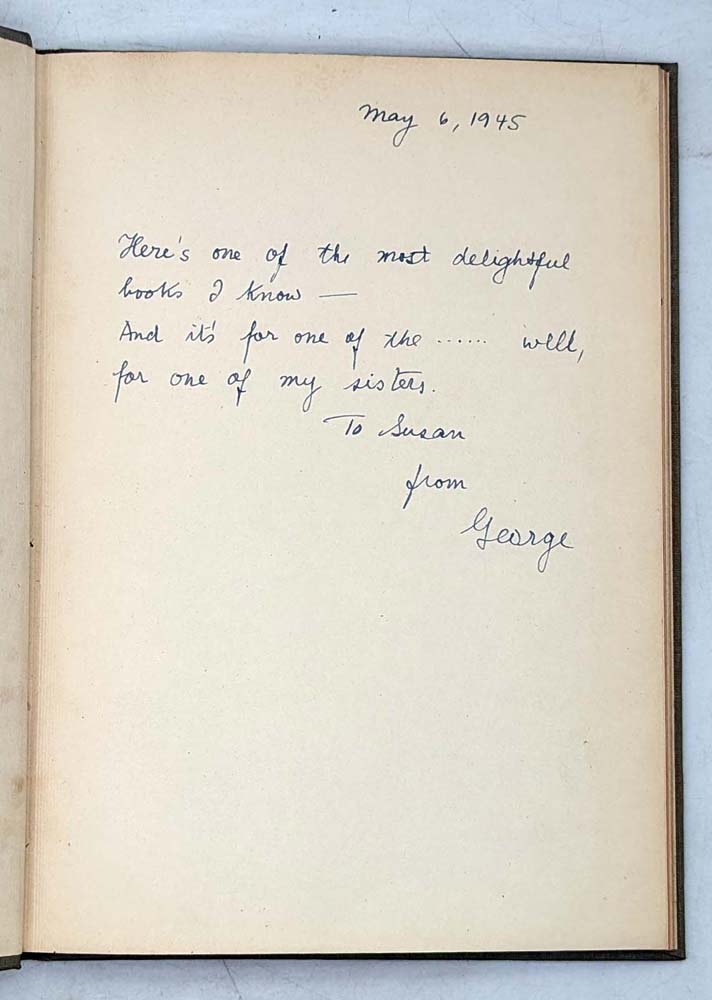 May 6, 1945
Here's one of the most delightful
books I know —
And it's for one of the ...... well,
for one of my sisters.
To Susan
from
George